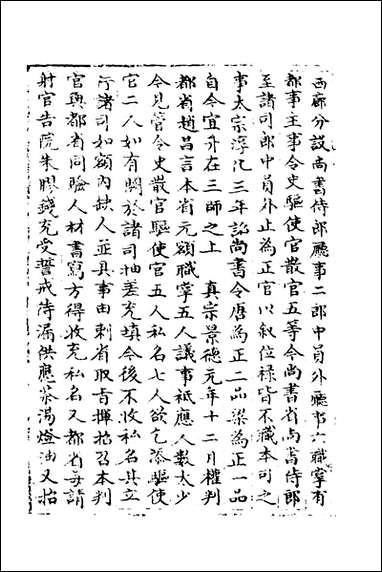 西廊分設尚書侍郎廳事二郎中員外廳事六職掌有
都事主事令史驅使官散官五等今尚書省尚書侍郎
至諸司郎中員外止為正官以叙位禄皆不職本司之
事太宗淳化三年詔尚書令唐為正二品梁為正一品
自今宜升在三師之上　真宗景德元年十二月權判
都省趙昌言本省元額職掌五人議事祗應人數太少
今見管令史散官驅使官五人私名七人欲乞添驅使
官二人如有闕於諸司抽差充填今後不收私名其立
行諸司如額內缺人並具事由刺省取旨揮招召本判
官與都省同驗人材書寫方得收充私名又都省每請
射官告院朱膠錢充受誓戒待漏供應茶湯燈油又招